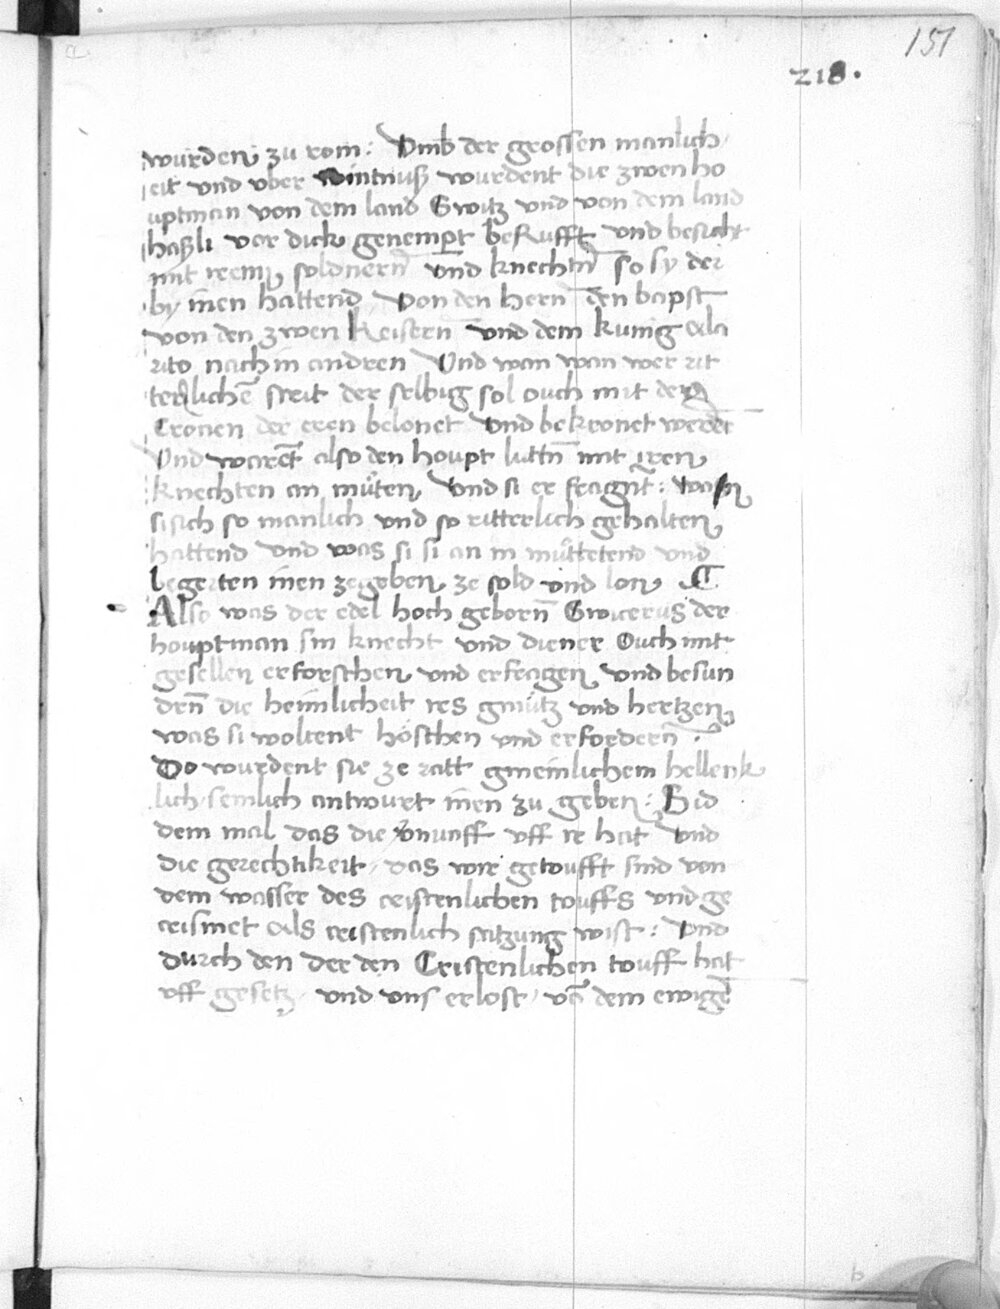 151
218.
wurden zu rom: Vmb der grossen manlich
eit vnd vber wintnusz wurdent die zwen ho
uptman von dem land Switz vnd von dem land
haszli vor dick genempt berufft vnd besicht
mit reem soldnern vnd knechtn so sy der
by inen hattend von den hern den bapst
von den zwen keisern vnd dem kunig ala
rito nach in andren Vnd wan wan wer rit
terlichē streit der selbig sol ouch mit dery
Cronen der eren belonet vnd bekronet werdē
Vnd warēt also den houpt luttn mit iren
knechten an muͤten vnd si er fragnt: was
si sich so manlich vnd so ritterlich gehalten
hattend vnd was si si an in muͤttetend vnd
begerten inen zegeben ze sold vnd lon
Also was der edel hoch geborn Switerus der
houptman sin knecht vnd diener Ouch mit
gesellen erforschen vnd erfragen vnd besun
drn die heimlicheit res gmuͤtz vnd hertzen
was si woltent hoͤschen vnd erfordern:
Do wurdent sie ze ratt gmeinlichem hellenk
lich semlich antwurt inen zu geben: Sid
dem mal das die vnunff vff re hat vnd
die gerechtikeit das wir getoufft sind von
dem wasser des cristenlichen touffs vnd ge
crismet als cristenlich satzung wist: Vnd
durch den der den Cristenlichen touff hat
vff gesetz vnd vns erlost vō dem ewigē